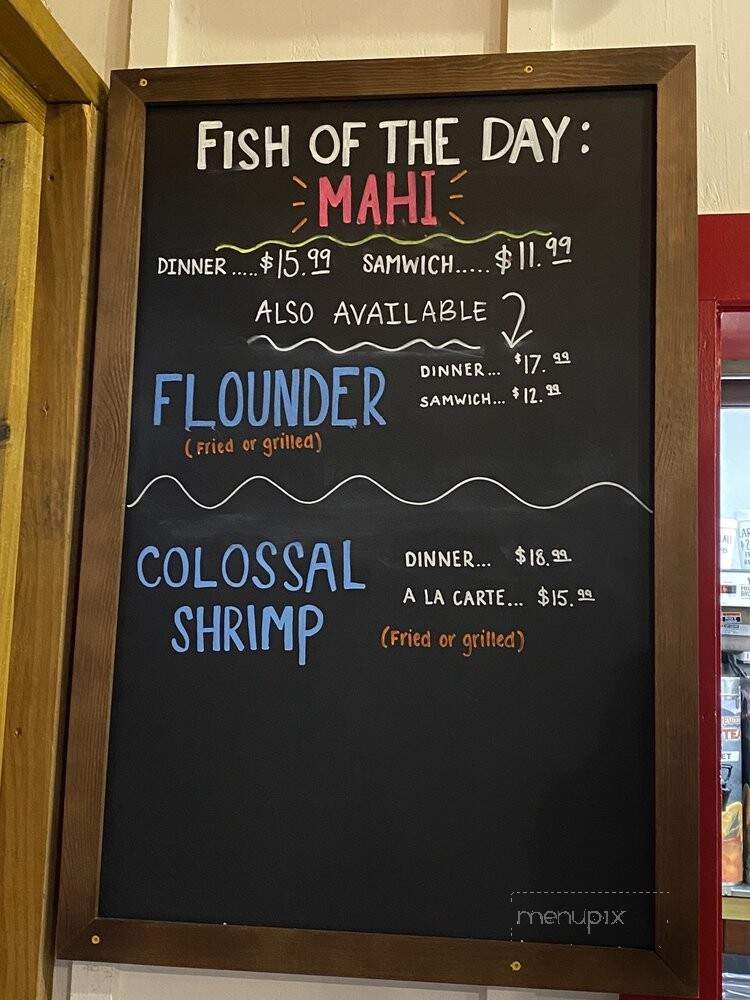 FISH OF THE DAY:
MAHI
DINNER.....$15.99 SAMWICH.....$11.99
ALSO AVAILABLE
FLOUNDER
(Fried or grilled)
DINNER... $17.99
SAMWICH... $12.99
COLOSSAL
SHRIMP
DINNER... $18.99
A LA CARTE... $15.99
(Fried or grilled)
menupix